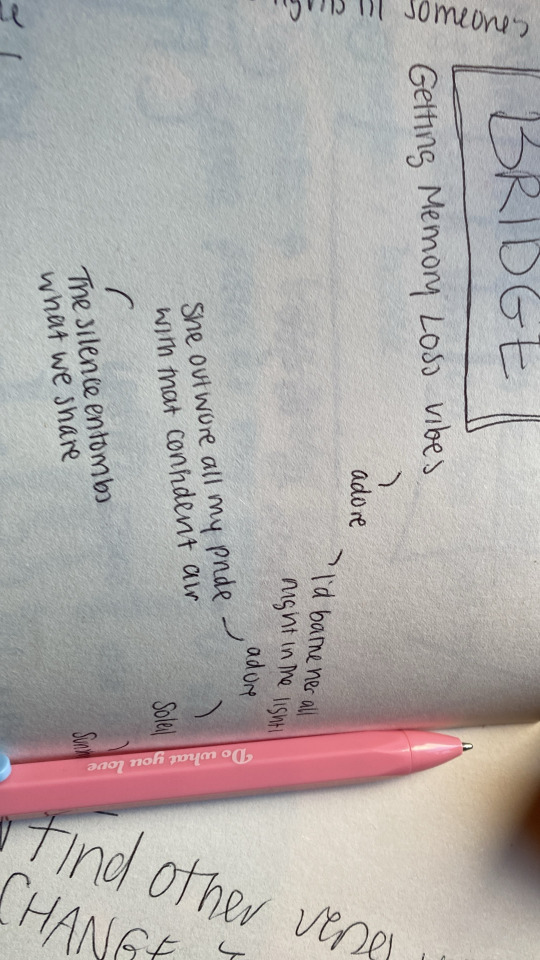 someones
BRIDGE
Getting Memory Loss vibes
adore
I'd bathe her all
night in the light
adore
She outwore all my pride
with that confident air
Soleil
The silence entombs
what we share
Do what you love
find other verses
CHANGE